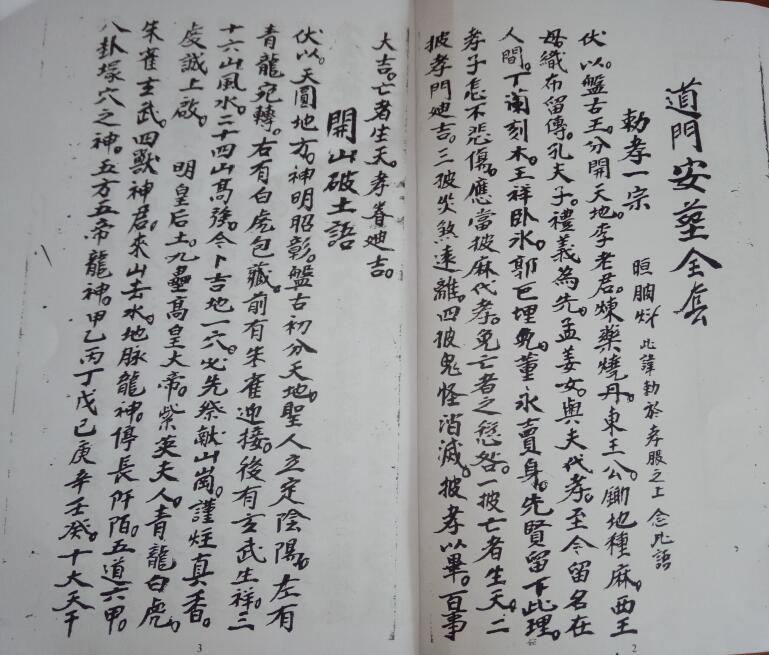 道門安葬全套
勅孝一宗
此諱勅於孝服之上念此語
伏以。盤古王。分開天地。李老君。煉藥燒丹。東王公。鋤地種麻。西王
母。織布留傳。孔夫子。禮義為先。孟姜女。與夫代孝。至今留名在
人間。丁蘭刻木。王祥卧氷。郭巨埋兒。董永賣身。先賢留下此理。
孝子怎不悲傷。應當披麻代孝。免亡者之愆咎。一披亡者生天。二
披孝門迪吉。三披災煞遠離。四披鬼怪消滅。披孝以畢。百事
2
大吉。亡者生天。孝眷迪吉。
開山破土語
伏以。天圓地方。神明昭彰。盤古初分天地。聖人立定陰陽。左有
青龍宛轉。右有白虎包藏。前有朱雀迎接。後有玄武生祥。三
十六山風水。二十四山高強。今卜吉地一穴。必先祭獻山崗。謹炷真香。
虔誠上啟。 明皇后土。九壘高皇大帝。紫英夫人。青龍白虎。
朱雀玄武。四獸神君。來山去水。地脉龍神。停長阡陌。五道六甲。
八卦塚穴之神。五方五帝龍神。甲乙丙丁戊己庚辛壬癸。十大天干
3